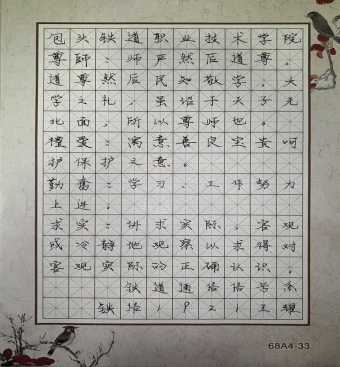 包头铁道职业技术学院
尊師：师严然后道尊。
道尊然后民知敬学，大
学之礼，虽诏于天子无
北面，所以尊师也。
禮爱：寓意善良宝贵呵
护保护之意。
勤奮：学习、工作努力
上进。
求实：讲求实际，客观
或冷静地观察以求得对
客观实际的正确认识。系
铁道通信信号
铁信1921王耀
68A4-33